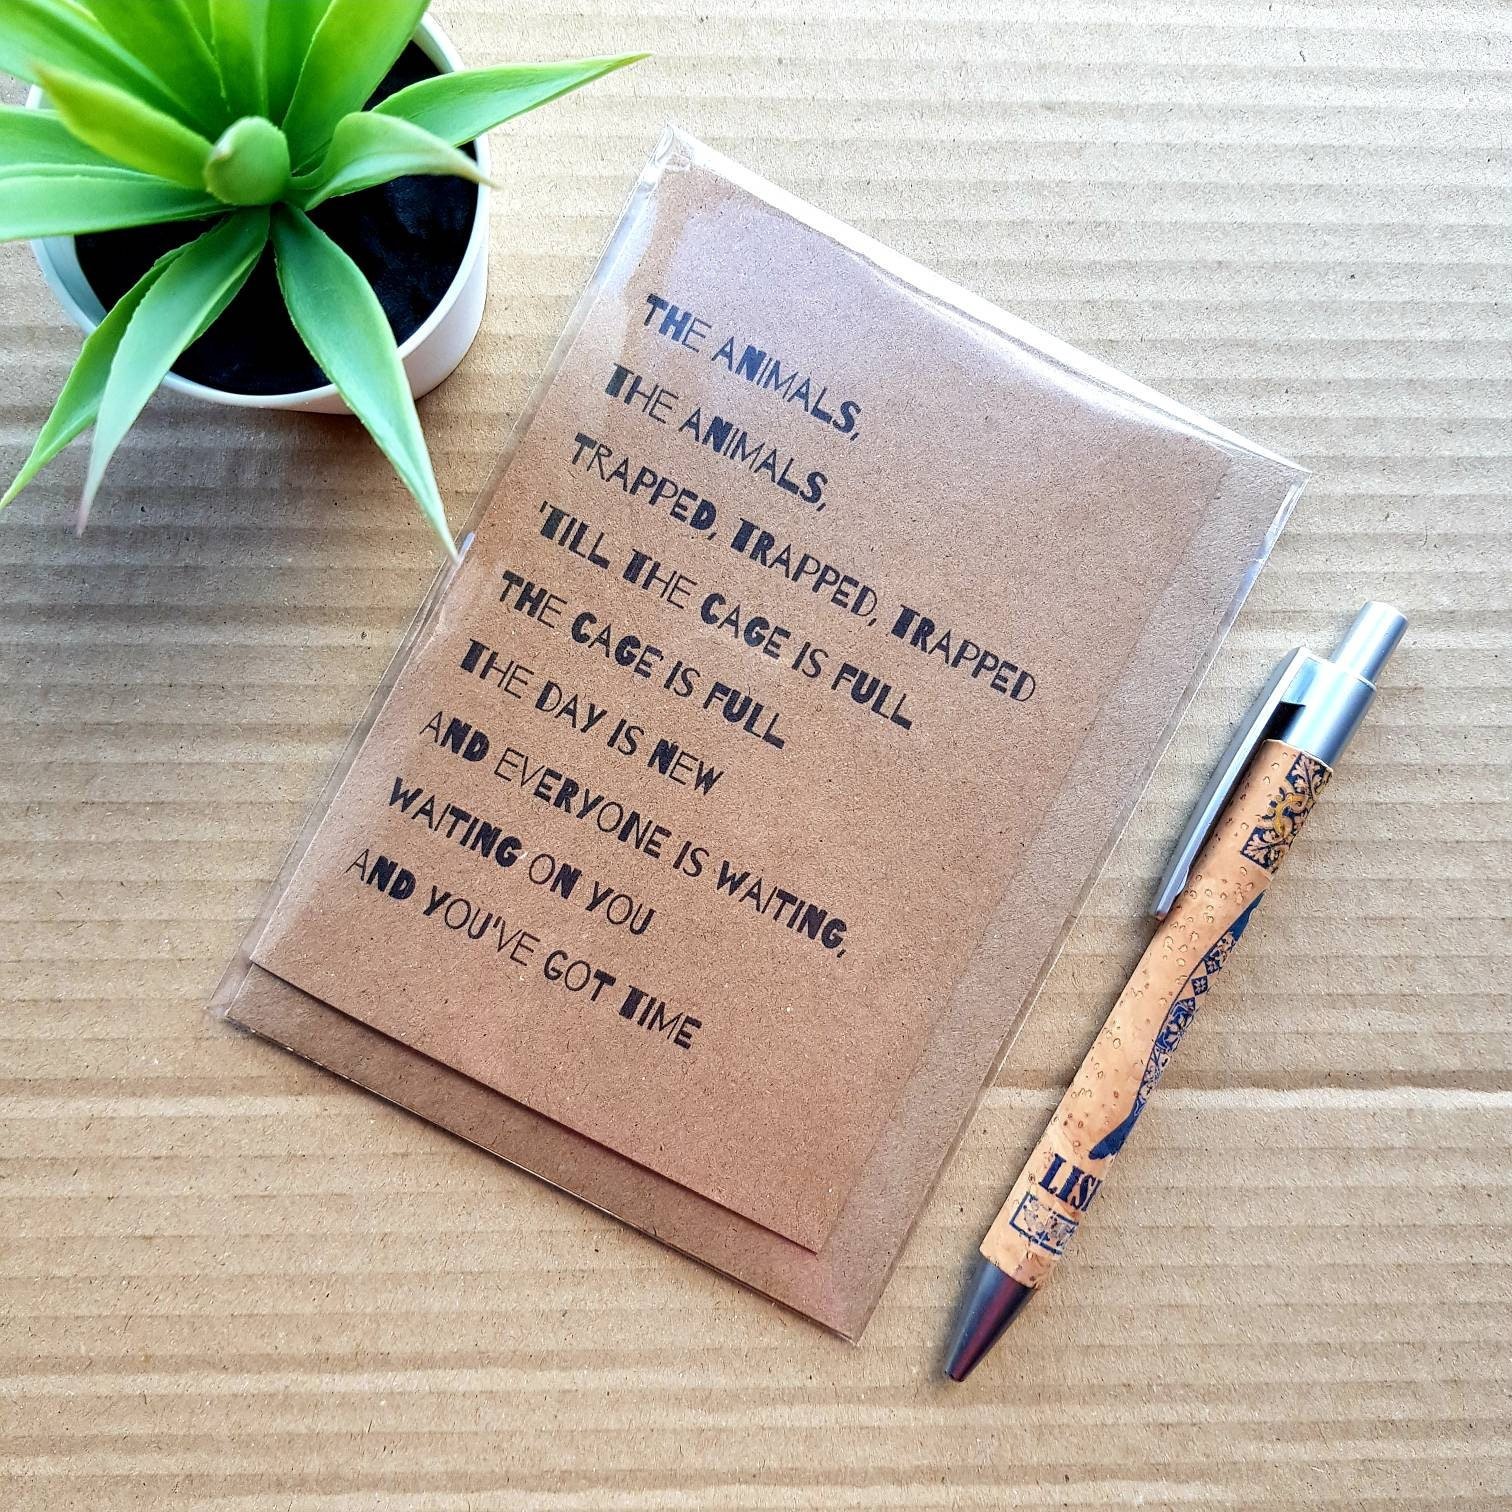 THE ANIMALS,
THE ANIMALS,
TRAPPED, TRAPPED, TRAPPED
'TILL THE CAGE IS FULL
THE CAGE IS FULL
THE DAY IS NEW
AND EVERYONE IS WAITING,
WAITING ON YOU
AND YOU'VE GOT TIME